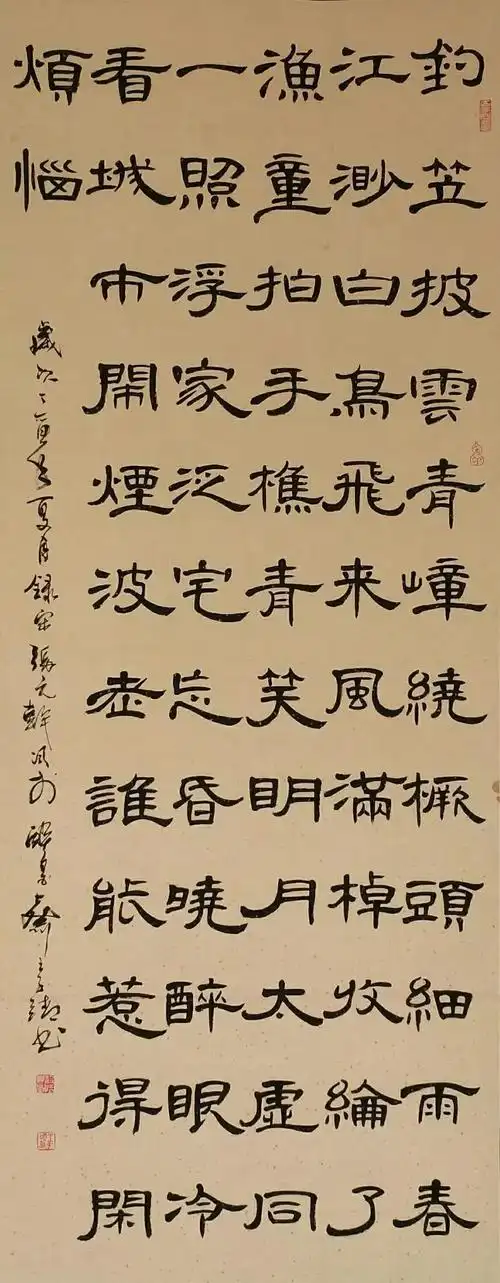 釣笠披雲青嶂繞橛頭細雨春
江渺白鳥飛来風滿棹收綸了
漁童拍手樵青笑明月太虛同
一照浮家泛宅忘昏曉醉眼冷
看城市鬧煙波老誰能惹得閑
煩惱
歲次丁酉年夏月録宋張元幹詞於醉墨齋書